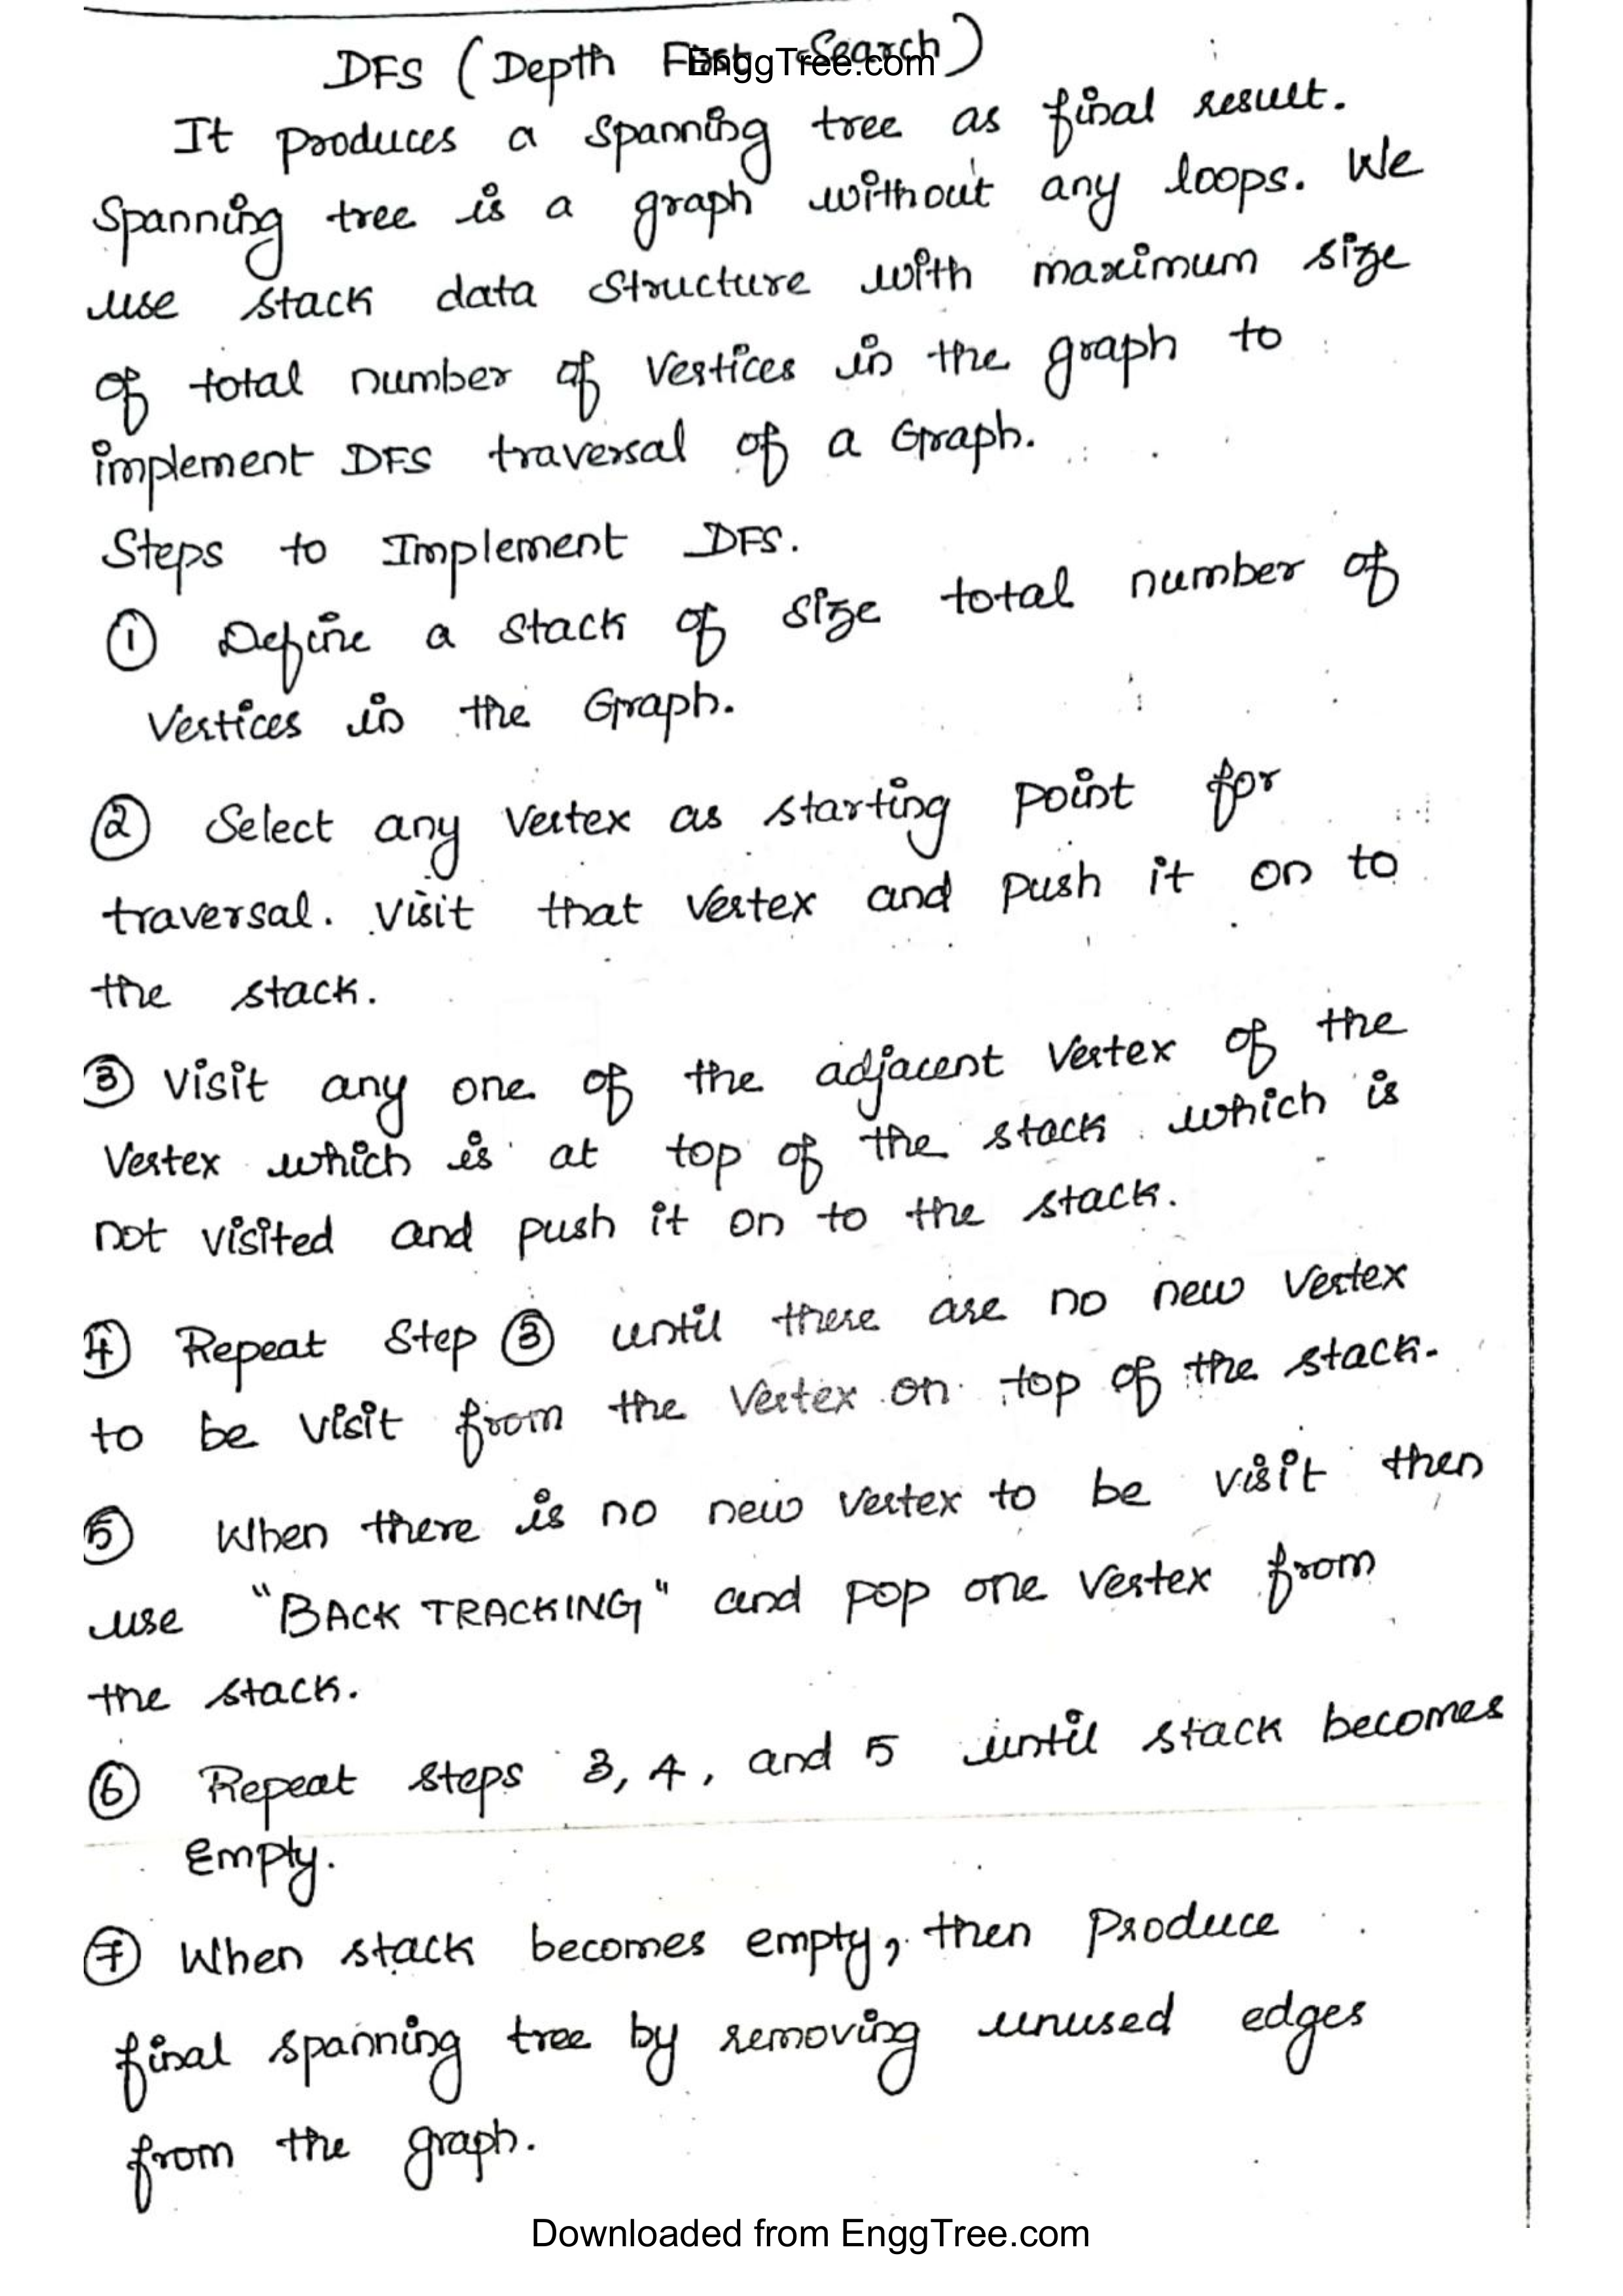 DFS (Depth First Search)
EnggTree.com
It produces a spanning tree as final result.
Spanning tree is a graph without any loops. We
use stack data structure with maximum size
of total number of vertices in the graph to
implement DFS traversal of a Graph.
Steps to Implement DFS.
① Define a stack of size total number of
Vertices in the Graph.
② Select any vertex as starting point for
traversal. Visit that vertex and push it on to
the stack.
③ Visit any one of the adjacent vertex of the
Vertex which is at top of the stack which is
not visited and push it on to the stack.
④ Repeat Step ③ until there are no new vertex
to be visit from the vertex on top of the stack.
⑤ When there is no new vertex to be visit then
use "BACK TRACKING" and pop one vertex from
the stack.
⑥ Repeat steps 3, 4, and 5 until stack becomes
Empty.
⑦ When stack becomes empty, then produce
final spanning tree by removing unused edges
from the graph.
Downloaded from EnggTree.com